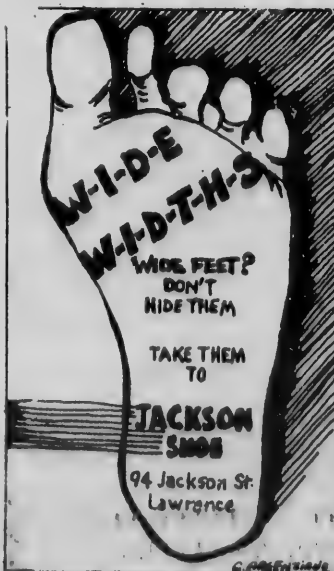 W-I-D-E
W-I-D-T-H-S
WIDE FEET?
DON'T
HIDE THEM
TAKE THEM
TO
JACKSON
SHOE
94 Jackson St.
Lawrence
C. ARGENZIANO